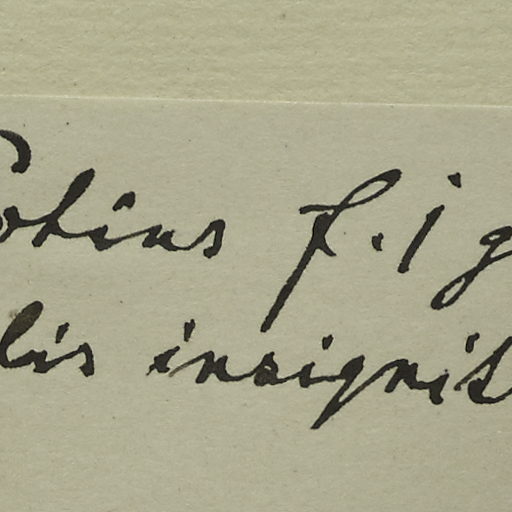 otius f. i g
lis insignit